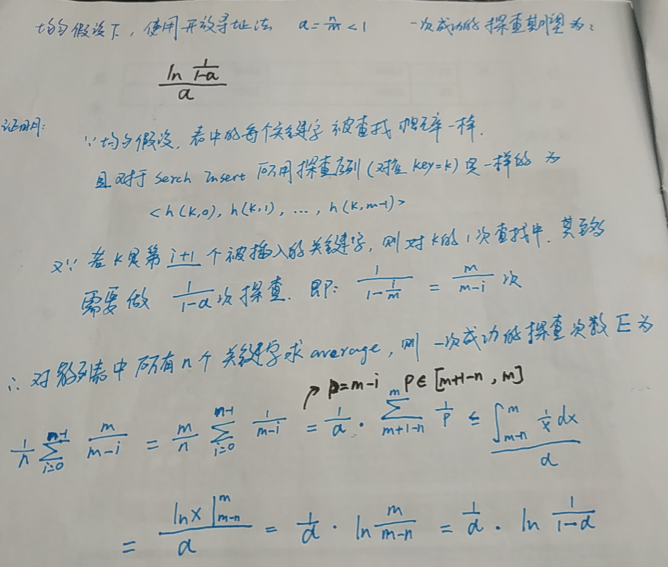 均匀假设下，使用开放寻址法 α = n/m < 1 一次成功的探查期望为：
ln 1/(1-α) / α
证明：
∵均匀假设，表中的每个关键字被查找概率一样.
且对于 Serch Insert 所用探查序列 (对应 key=k) 是一样的 为
<h(k,0), h(k,1), ..., h(k,m-1)>
又∵ 若 k 是第 i+1 个被插入的关键字，则对 k 的 1 次查找中，其至多
需要做 1/(1-α) 次探查. 即: 1/(1-i/m) = m/(m-i) 次
∴ 对散列表中所有 n 个关键字求 average, 则 一次成功的探查次数 E 为
p=m-i p∈[m+1-n, m]
1/n ∑_{i=0}^{n-1} m/(m-i) = m/n ∑_{i=0}^{n-1} 1/(m-i) = 1/α · ∑_{m+1-n}^{m} 1/p ≤ ∫_{m-n}^{m} 1/x dx / α
= ln x |_{m-n}^{m} / α = 1/α · ln m/(m-n) = 1/α · ln 1/(1-α)